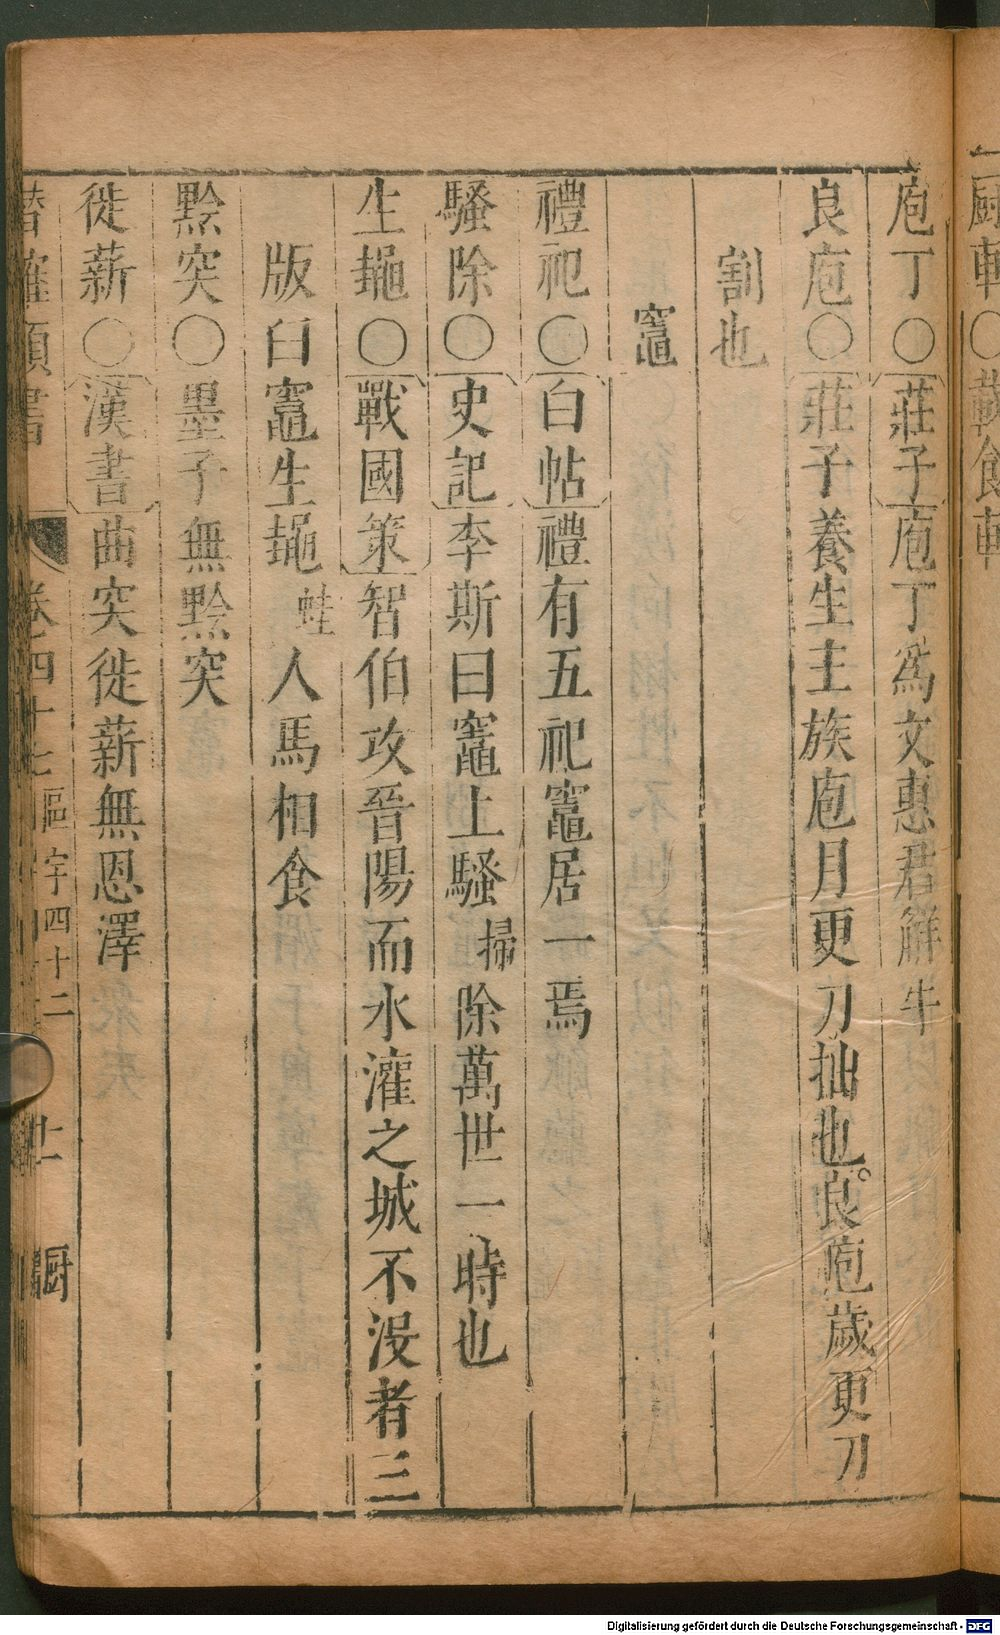 廚車〇載食車
庖丁〇莊子庖丁爲文惠君解牛
良庖〇莊子養生主族庖月更刀拙也良庖歲更刀
割也
竈
禮祀〇白帖禮有五祀竈居一焉
騷除〇史記李斯曰竈上騷掃除萬世一時也
生鼃〇戰國策智伯攻晉陽而水灌之城不没者三
版臼竈生鼃蛙人馬相食
黔突〇墨子無黔突
徙薪〇漢書曲突徙薪無恩澤
類書 卷四十七 區宇四十二 十一 厨
Digitalisierung gefördert durch die Deutsche Forschungsgemeinschaft - DFG